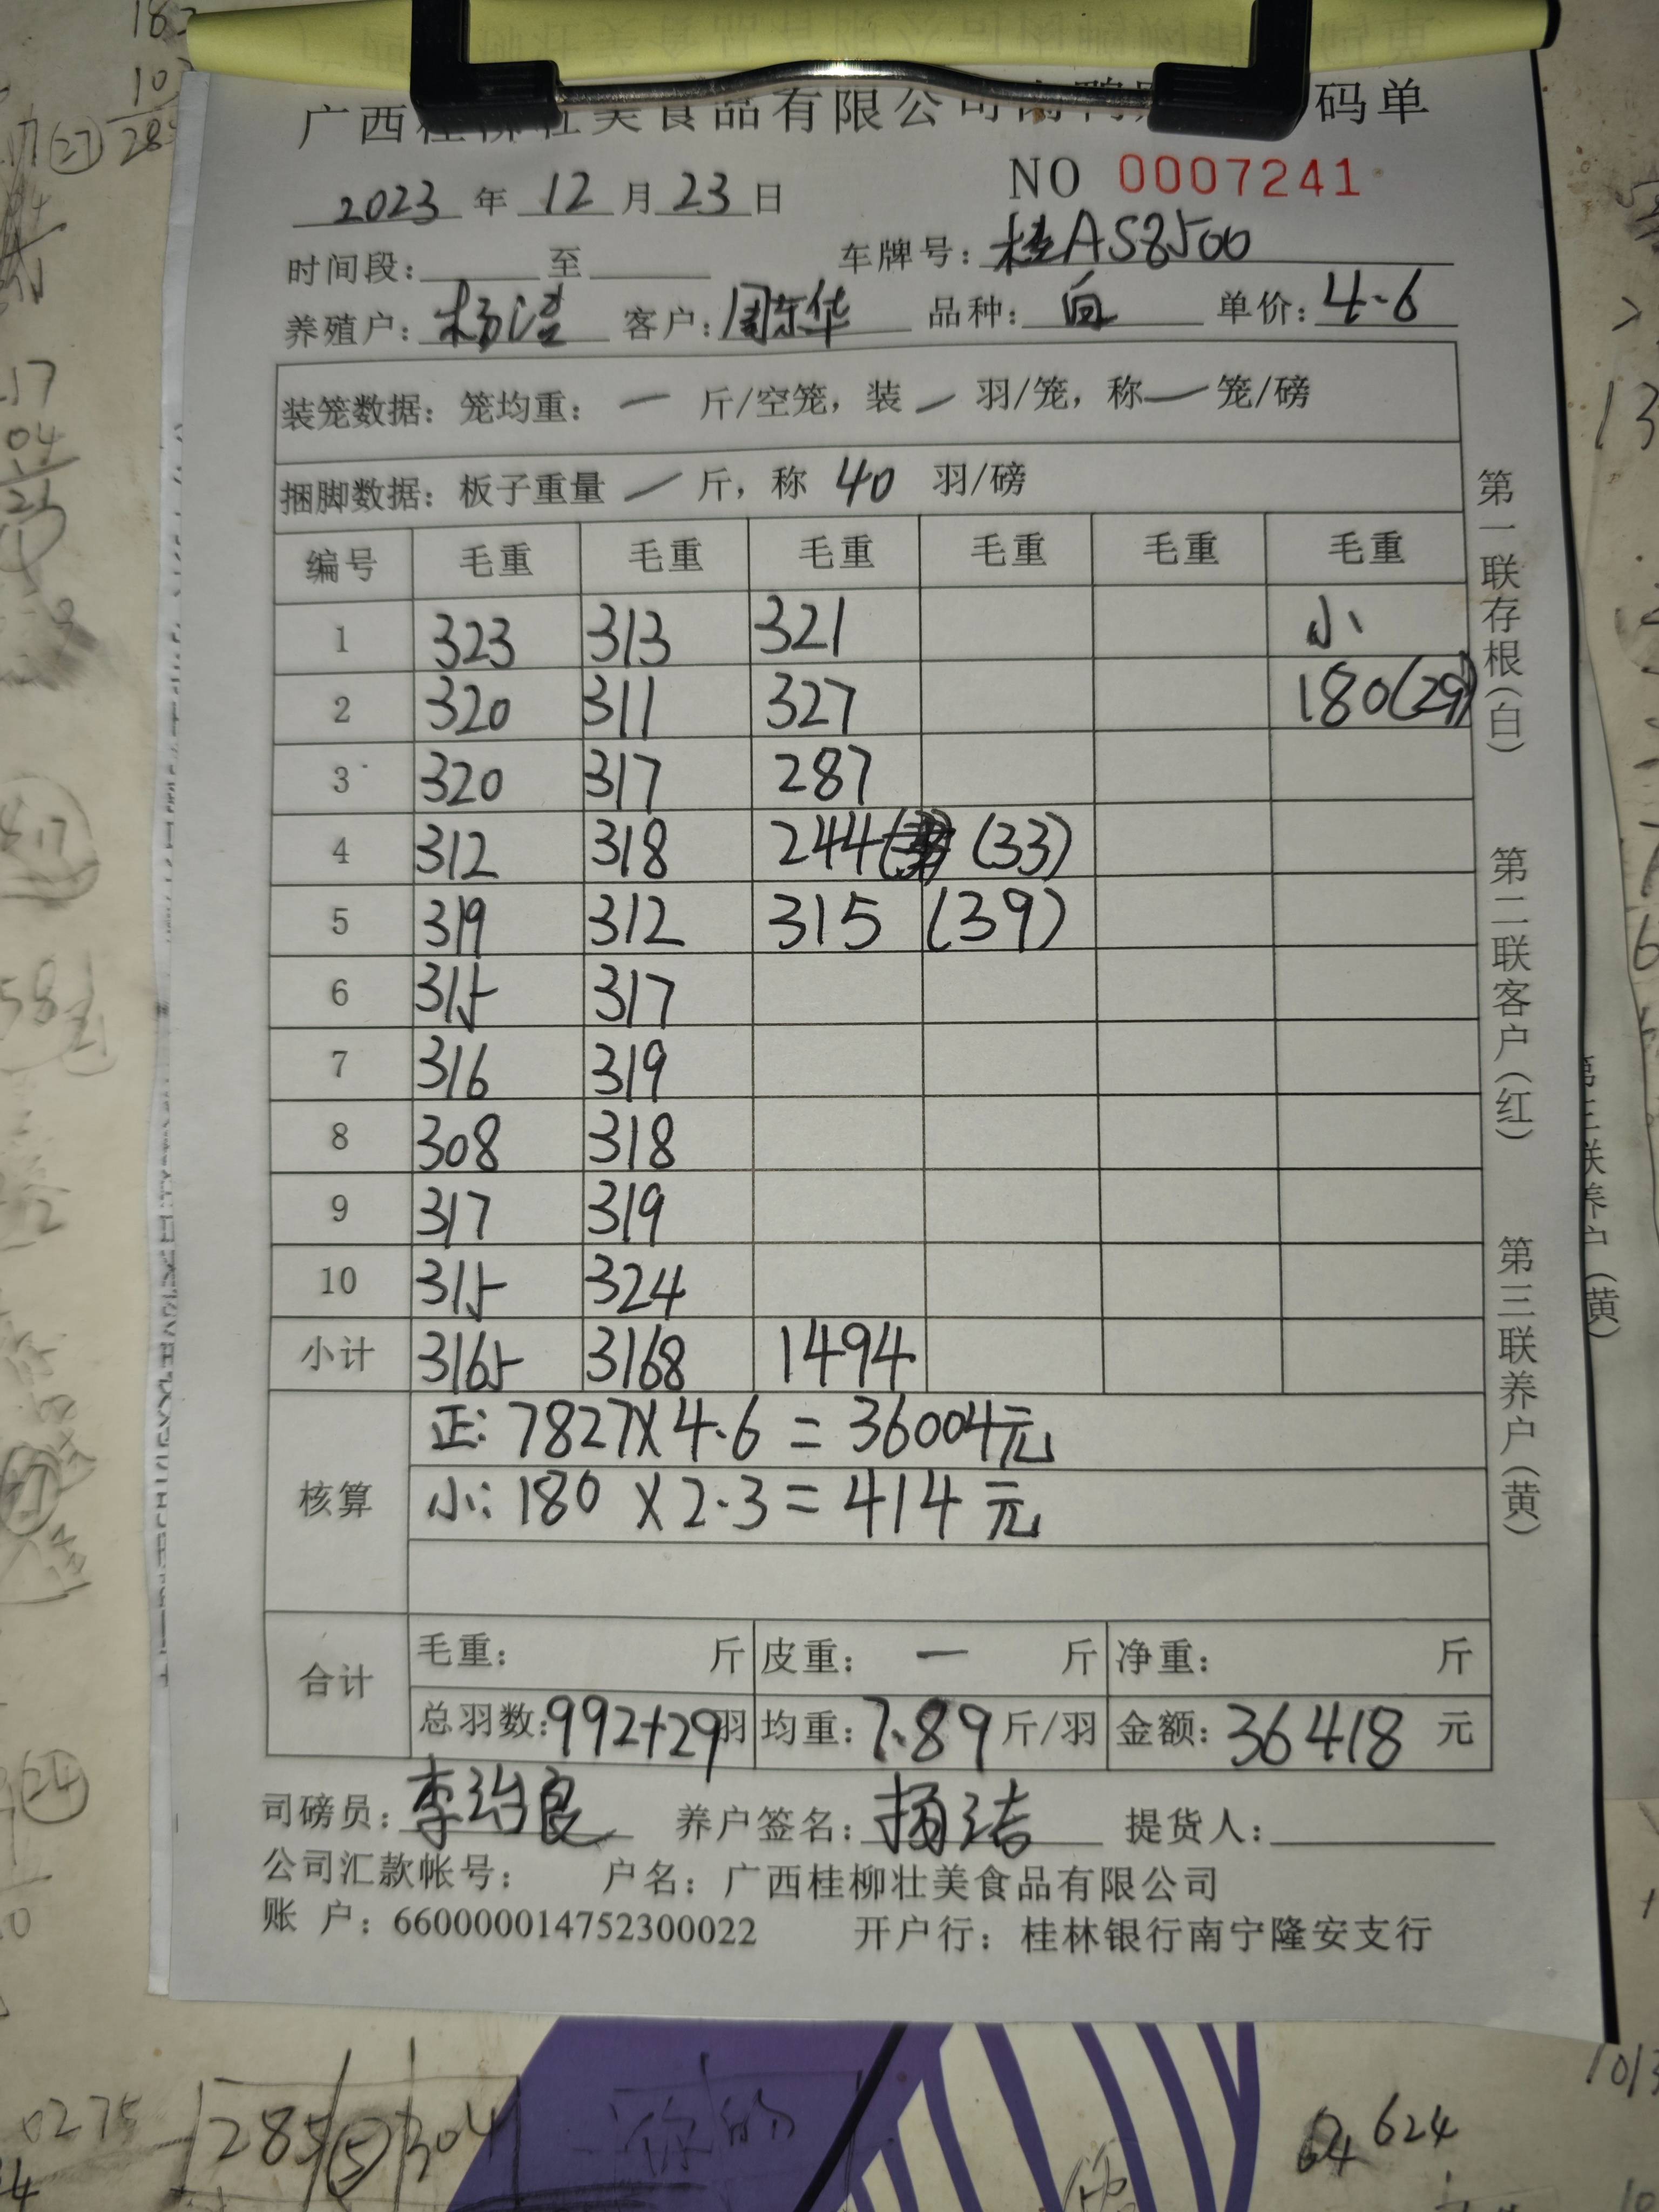 广西桂柳壮美食品有限公司 码单
NO 0007241
2023 年 12 月 23 日
时间段: 至 车牌号: 桂AS8500
养殖户: 杨洁 客户: 周东华 品种: 白 单价: 4.6
装笼数据: 笼均重: — 斤/空笼, 装 — 羽/笼, 称 — 笼/磅
捆脚数据: 板子重量 — 斤, 称 40 羽/磅
编号 毛重 毛重 毛重 毛重 毛重 毛重
1 323 313 321 小
2 320 311 327 180(29)
3 320 317 287
4 312 318 244 (33)
5 319 312 315 (39)
6 315 317
7 316 319
8 308 318
9 317 319
10 315 324
小计 3165 3168 1494
核算
正: 7827X4.6 = 36004元
小: 180 X 2.3 = 414 元
合计
毛重: 斤 皮重: — 斤 净重: 斤
总羽数: 992+29 羽 均重: 7.89 斤/羽 金额: 36418 元
司磅员: 李治良 养户签名: 杨洁 提货人:
公司汇款帐号: 户名: 广西桂柳壮美食品有限公司
账 户: 660000014752300022 开户行: 桂林银行南宁隆安支行
第一联存根(白)
第二联客户(红)
第三联养户(黄)
0275
285 5 304
624